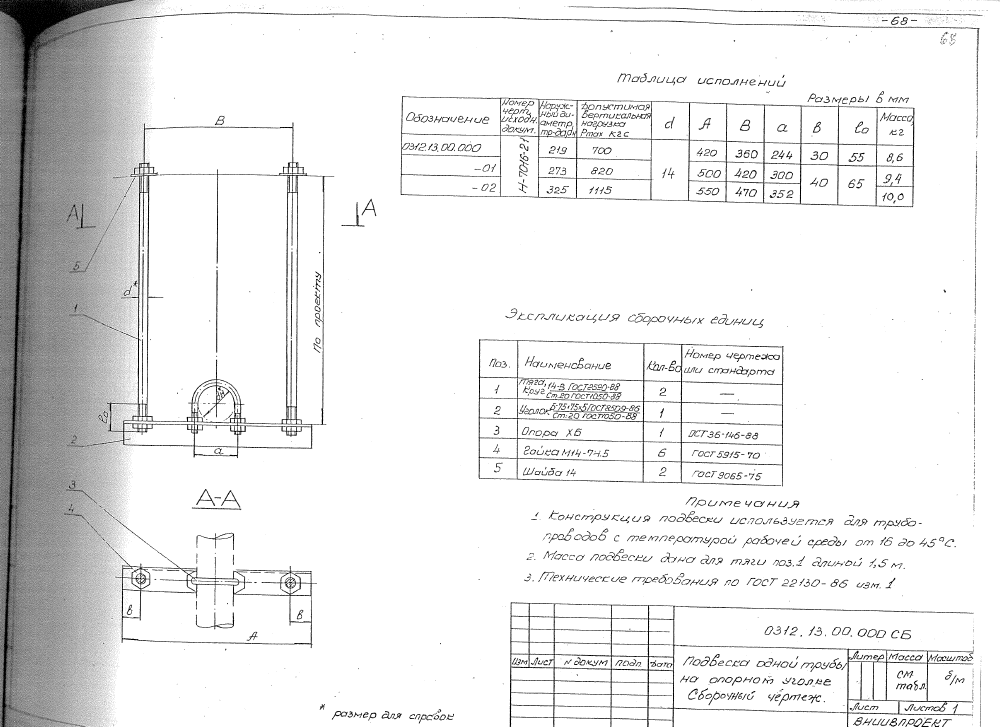 -68-
68
Таблица исполнений
Размеры в мм
Обозначение | Номер черт. исходн. докум. | Наруж-ный ди-аметр, тр-да, Dн | Допустимая вертикальная нагрузка Pmax кгс | d | A | B | a | в | l₀ | Масса, кг
0312.13.00.000 | Н-7016-21 | 219 | 700 | 14 | 420 | 360 | 244 | 30 | 55 | 8,6
-01 | 273 | 820 | 500 | 420 | 300 | 40 | 65 | 9,4
-02 | 325 | 1115 | 550 | 470 | 352 | 10,0
B
A
A
5
d*
1
По проекту
l₀
2
a
A-A
3
4
в
в
A
Экспликация сборочных единиц
Поз. | Наименование | Кол-во | Номер чертежа или стандарта
1 | Тяга, Круг 14-В ГОСТ 2590-88 / Ст.20 ГОСТ 1050-88 | 2 | —
2 | Уголок Б-75×75×5 ГОСТ 8509-86 / Ст.20 ГОСТ 1050-88 | 1 | —
3 | Опора ХБ | 1 | ОСТ 36-146-88
4 | Гайка М14-7Н.5 | 6 | ГОСТ 5915-70
5 | Шайба 14 | 2 | ГОСТ 9065-75
Примечания
1. Конструкция подвески используется для трубо-
проводов с температурой рабочей среды от 16 до 45°С.
2. Масса подвески дана для тяги поз.1 длиной 1,5 м.
3. Технические требования по ГОСТ 22130-86 изм. 1
0312.13.00.000 СБ
Изм. Лист N докум подп. Дата
Подвеска одной трубы
на опорном уголке
Сборочный чертеж.
Литер Масса Масштаб
см. табл. б/м
Лист Листов 1
ВНИИВПРОЕКТ
* размер для справок